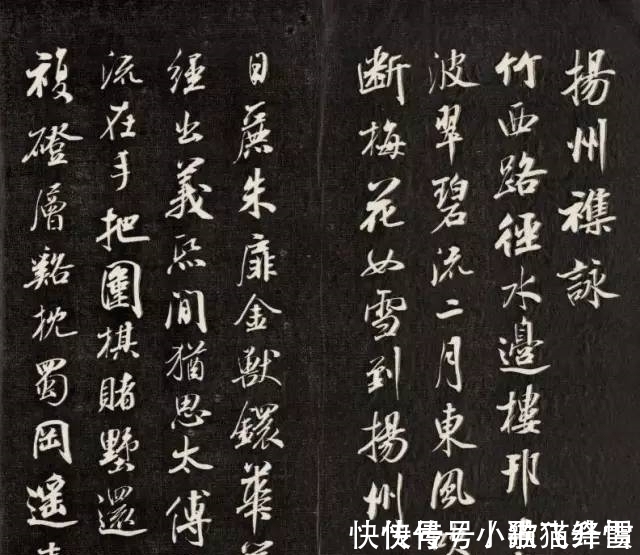 揚州襍詠
竹西路徑水邊樓邗
波翠碧流二月東風
断梅花如雪到揚州
日麗朱扉金獸鐶華
經出義熙間猶思太傅
流在手把圍棋賭墅還
複磴層谿枕蜀岡遙